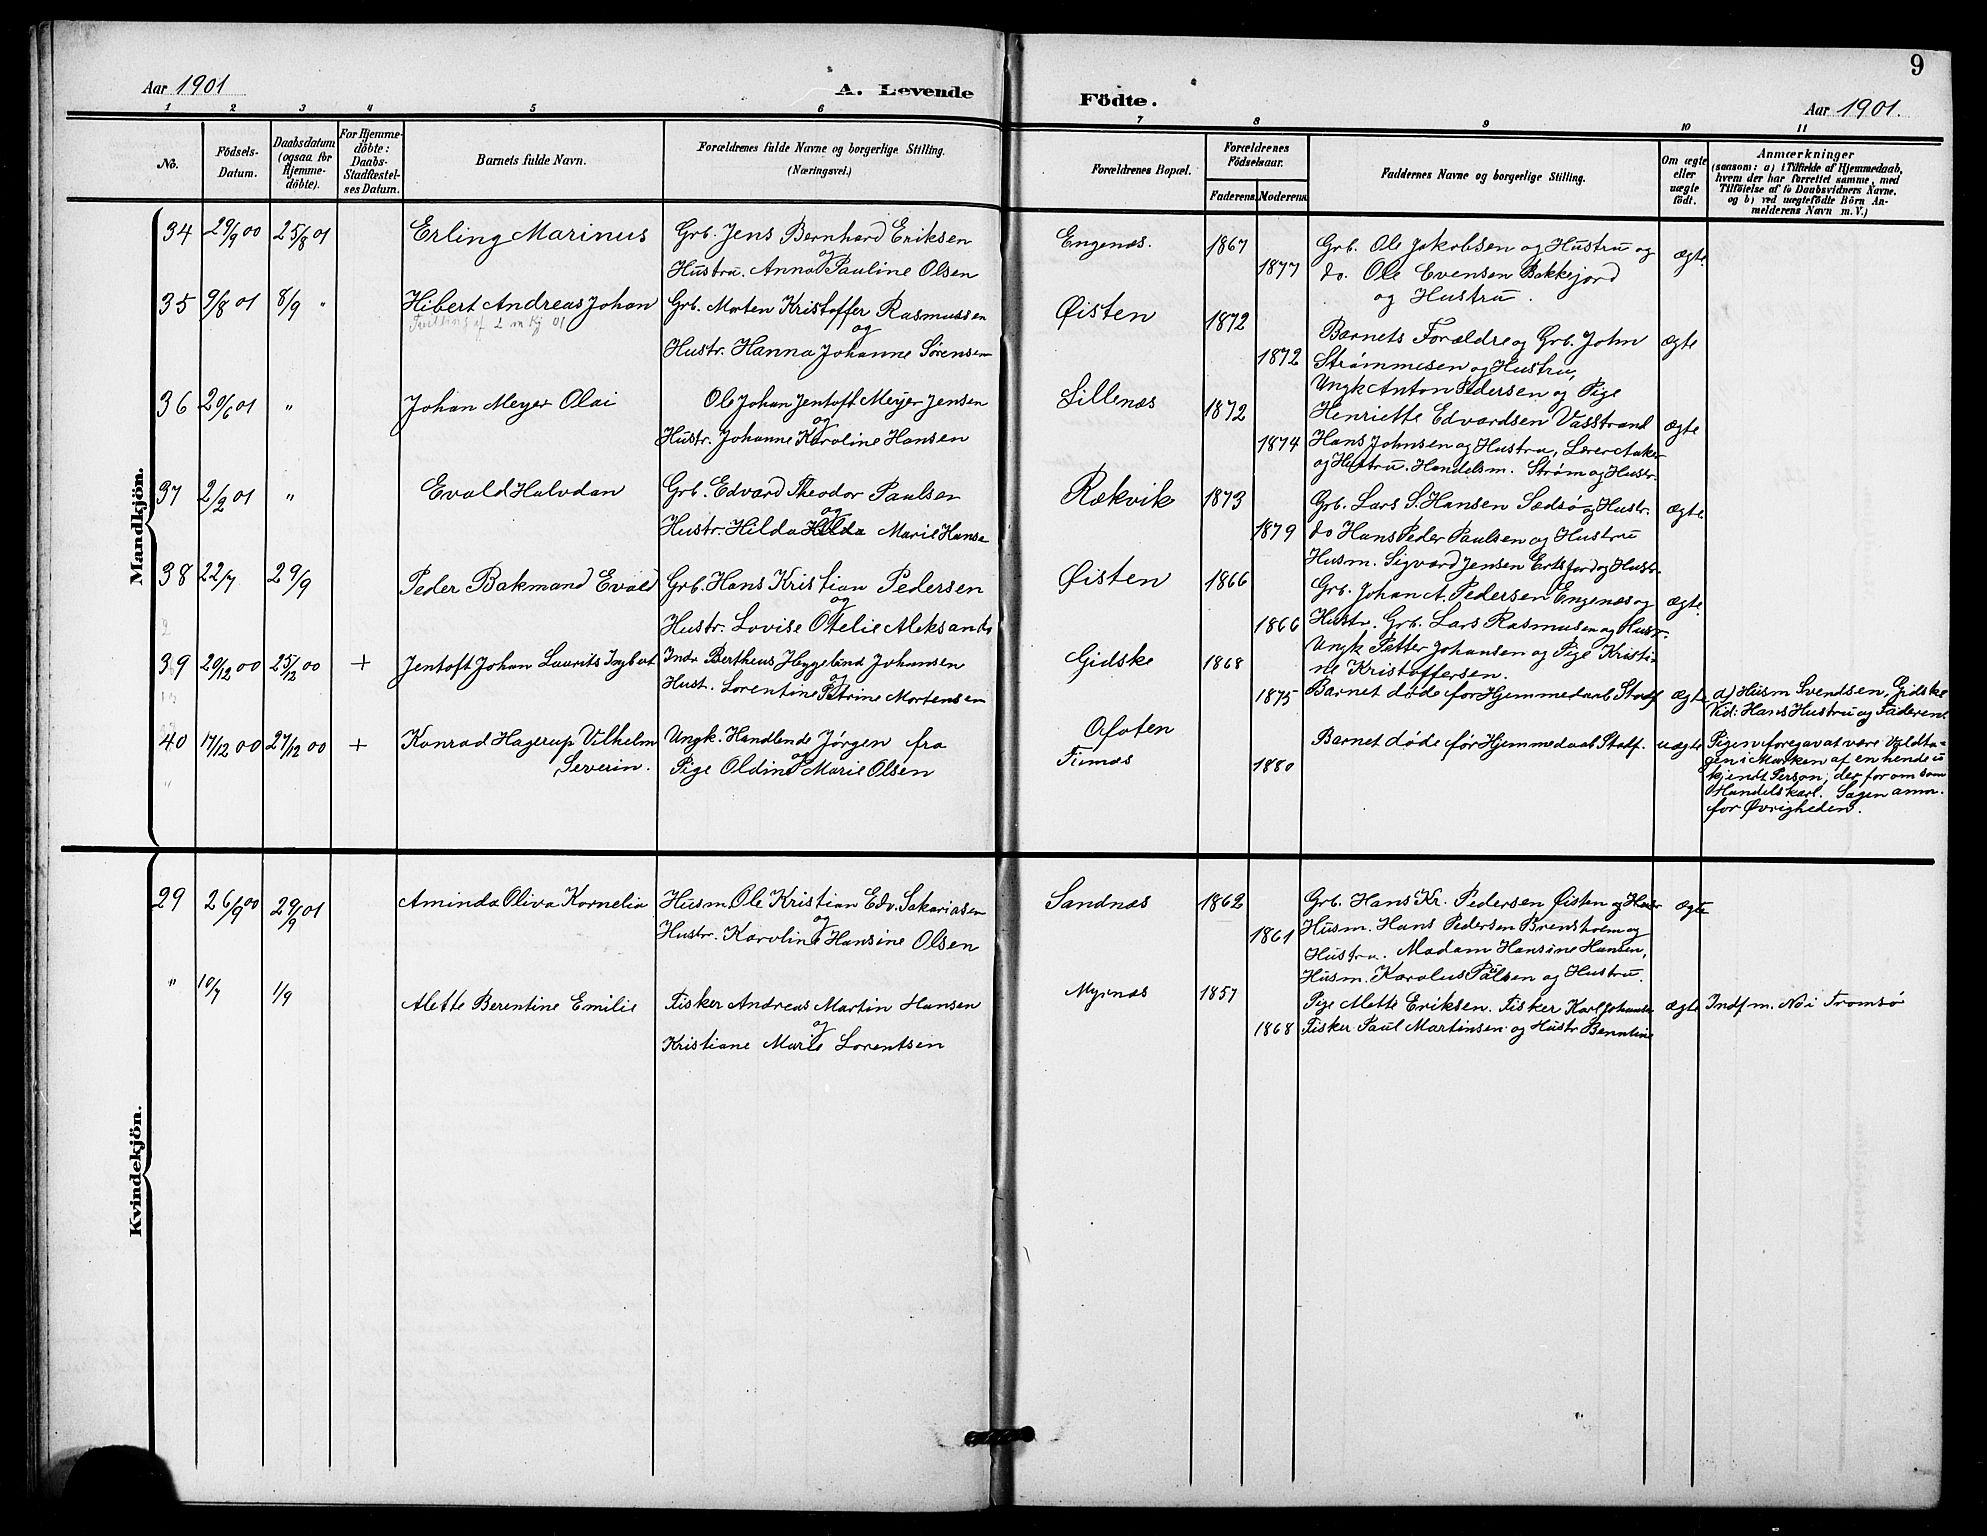 9
Aar 1901
A. Levende Födte.
Aar 1901.
1 2 3 4 5 6 7 8 9 10 11
No.
Födsels-Datum.
Daabsdatum (ogsaa for Hjemme-döbte).
For Hjemme-döbte: Daabs-Stadfæstel-ses Datum.
Barnets fulde Navn.
Forældrenes fulde Navne og borgerlige Stilling.
(Næringsvei.)
Forældrenes Bopæl.
Forældrenes Födselsaar.
Faderens. Moderens.
Faddernes Navne og borgerlige Stilling.
Om ægte eller uægte födt.
Anmærkninger
(saasom: a) i Tilfælde af Hjemmedaab,
hvem der har forrettet samme, med
Tilföielse af to Daabsvidners Navne.
og b) ved uægtefödte Börn An-
melderens Navn m. V.)
Mandkjön.
34 29/9 00 25/8 01 Erling Marinus Grb. Jens Bernhard Eriksen
og
Hustru. Anna Pauline Olsen
Engenæs. 1867 1877
Grb. Ole Jakobsen og Hustru og
do. Ole Evensen Bakkejord
og Hustru.
ægte
35 9/8 01 8/9 " Hibert Andreas Johan Grb. Morten Kristoffer Rasmussen
og
Hustr. Hanna Johanne Sørensen
Øisten 1872 1872
Barnets Forældre og Grb. John
Strømmesen og Hustru,
Ungk Anton Pedersen og Pige
Henriette Edvardsen Vasstrand
ægte
36 20/6 01 " Johan Meyer Olai Ole Johan Jentoft Meyer Jensen
og
Hustr. Johanne Karoline Hansen
Lillenæs 1872 1874
Hans Johnsen og Hustru, Lærer
og Hustru. Handelsm. Strøm og Hustr.
ægte
37 2/2 01 " Evald Halvdan Grb. Edvard Theodor Paulsen
og
Hustr. Hilda Hilda Marie Hanse
Rækvik 1873 1879
Grb. Lars S. Hansen Sædsø og Hustr.
do Hans Peder Paulsen og Hustru
Husm. Sigvard Jensen og Hustr.
ægte.
38 22/7 29/9 Peder Bakmand Evald Grb. Hans Kristian Pedersen
og
Hustr. Lovise Otelie Aleksand
Øisten 1866 1866
Grb. Johan A. Pedersen Engenæs og
Hustr. Grb. Lars Rasmusen og Hustr.
Ungk Petter Johansen og Pige Kristi-
ne Kristoffersen.
ægte.
39 20/12 00 25/12 00 + Jentoft Johan Laurits Ingbart Indr Bertheus Heggelund Johansen
og
Hust. Lorentine Petrine Mortensen
Gidske 1868 1875
Barnet døde før Hjemmedaab Stadf
ægte
a) Husm Svendsen, Gidske
Vid: Hans Hustru og Faderen.
40 17/12 00 27/12 00 + Konrad Hagerup Vilhelm
Severin.
Ungk. Handlende Jørgen fra
og
Pige Oldine Marie Olsen
Ofoten
Finnæs 1880
Barnet døde før Hjemmedaab Stadf.
uægte
Pigen foregav at være voldta-
gen i Marken af en hende u
kjendt Person, der for om som
Handelskarl. Sagen anm.
for Øvrigheden.
Kvindekjön.
29 26/9 00 29/9 01 Aminda Oliva Kornelia Husm. Ole Kristian Edv. Sakariasen
og
Hustr. Karoline Hansine Olsen
Sandnæs 1862 1861
Grb. Hans Kr. Pedersen Øisten og Hustr
Husm. Hans Pedersen Brensholm og
Hustru. Madam Hansine Hansen,
Husm. Karolus Paulsen og Hustru.
ægte
" 10/7 1/9 Alette Berentine Emilie Fisker Andreas Martin Hansen
og
Kristiane Marie Lorentsen
Myrnæs 1857 1868
Pige Alette Eriksen. Fisker Karl Johansen
Fisker Paul Martinsen og Hustr Berntine
ægte
Indf m. No i Tromsø